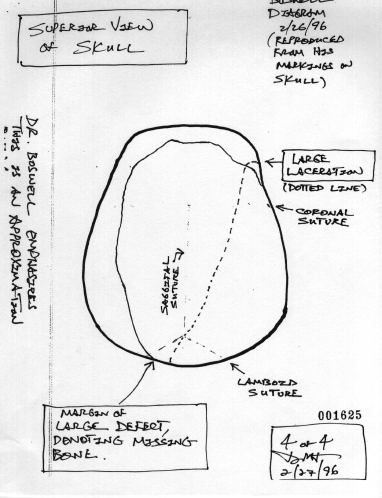 SUPERIOR VIEW
OF SKULL
BOSWELL
DIAGRAM
2/26/96
(REPRODUCED
FROM HIS
MARKINGS ON
SKULL)
DR. BOSWELL EMPHASIZES
THIS IS AN APPROXIMATION
LARGE
LACERATION
(DOTTED LINE)
CORONAL
SUTURE
SAGITTAL
SUTURE
LAMBOID
SUTURE
MARGIN OF
LARGE DEFECT,
DENOTING MISSING
BONE.
001625
4 of 4
2/27/96